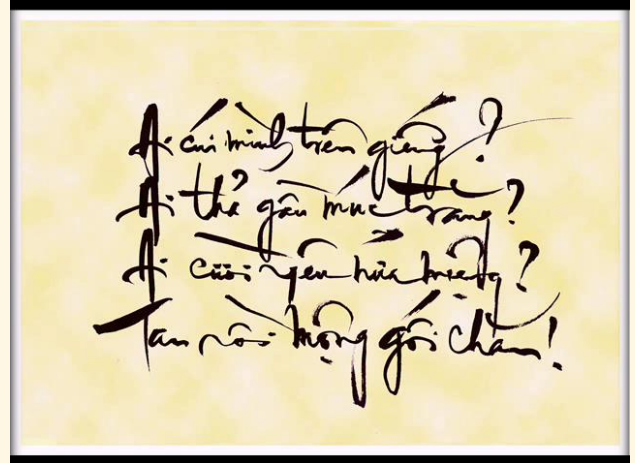 Ai cúi mình trên giếng?
Ai thả gầu múc trăng?
Ai cười yên hứa miệng?
Tan rồi mộng gối chăn!